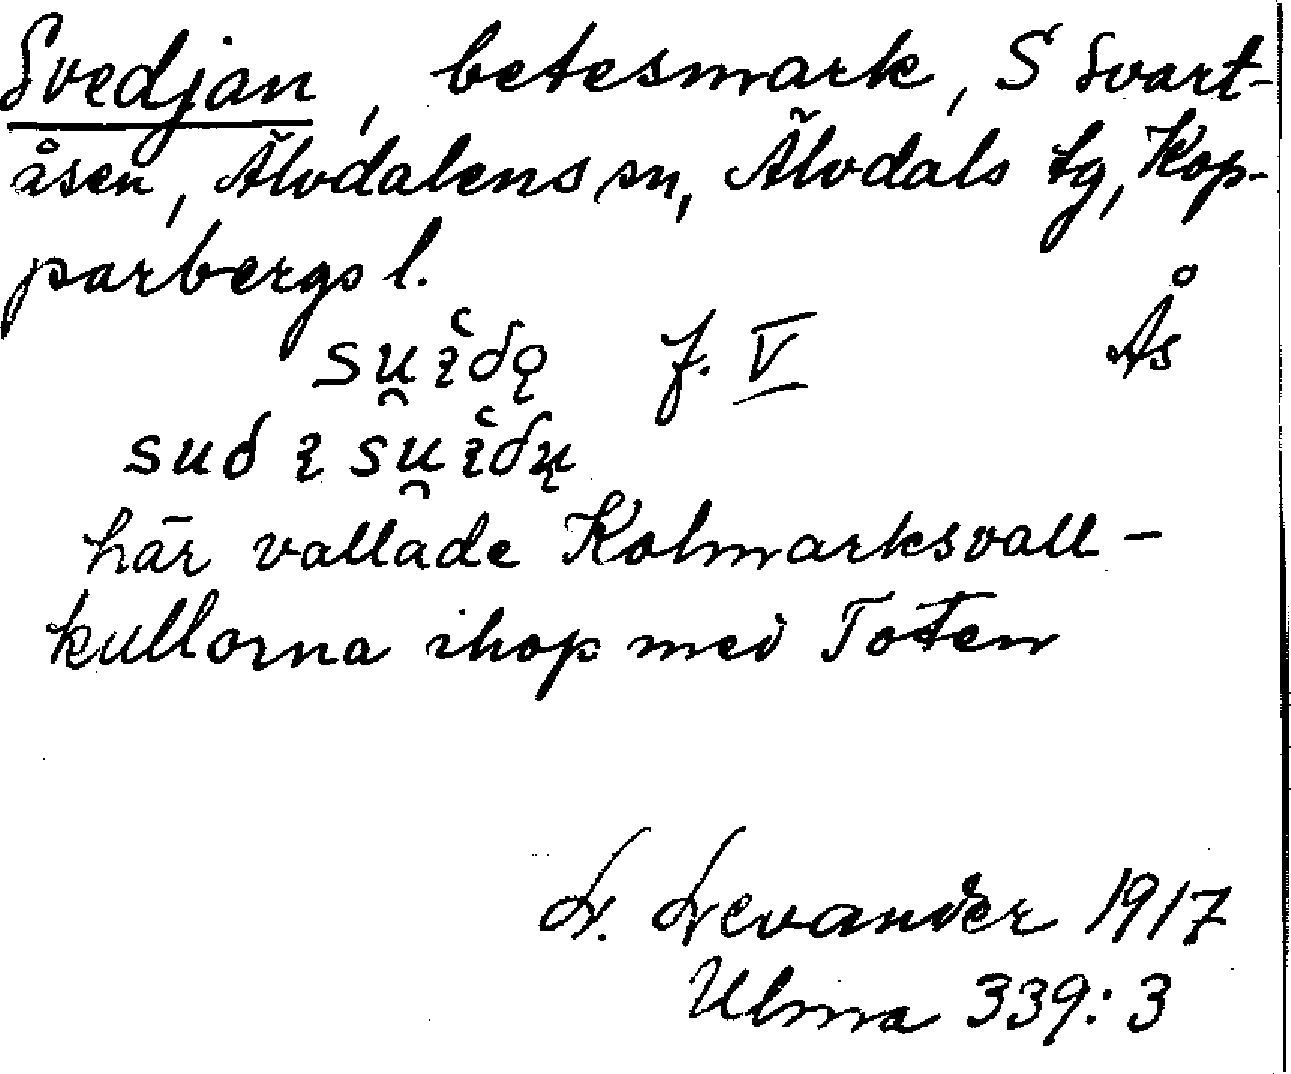 Svedjan, betesmark, S Svart-
åsen, Älvdalens sn, Älvdals tg, Kop-
parbergs l.
f. V Ås
här vallade Kolmarksvall-
kullorna ihop med Toten
L. Levander 1917
Ulma 339:3